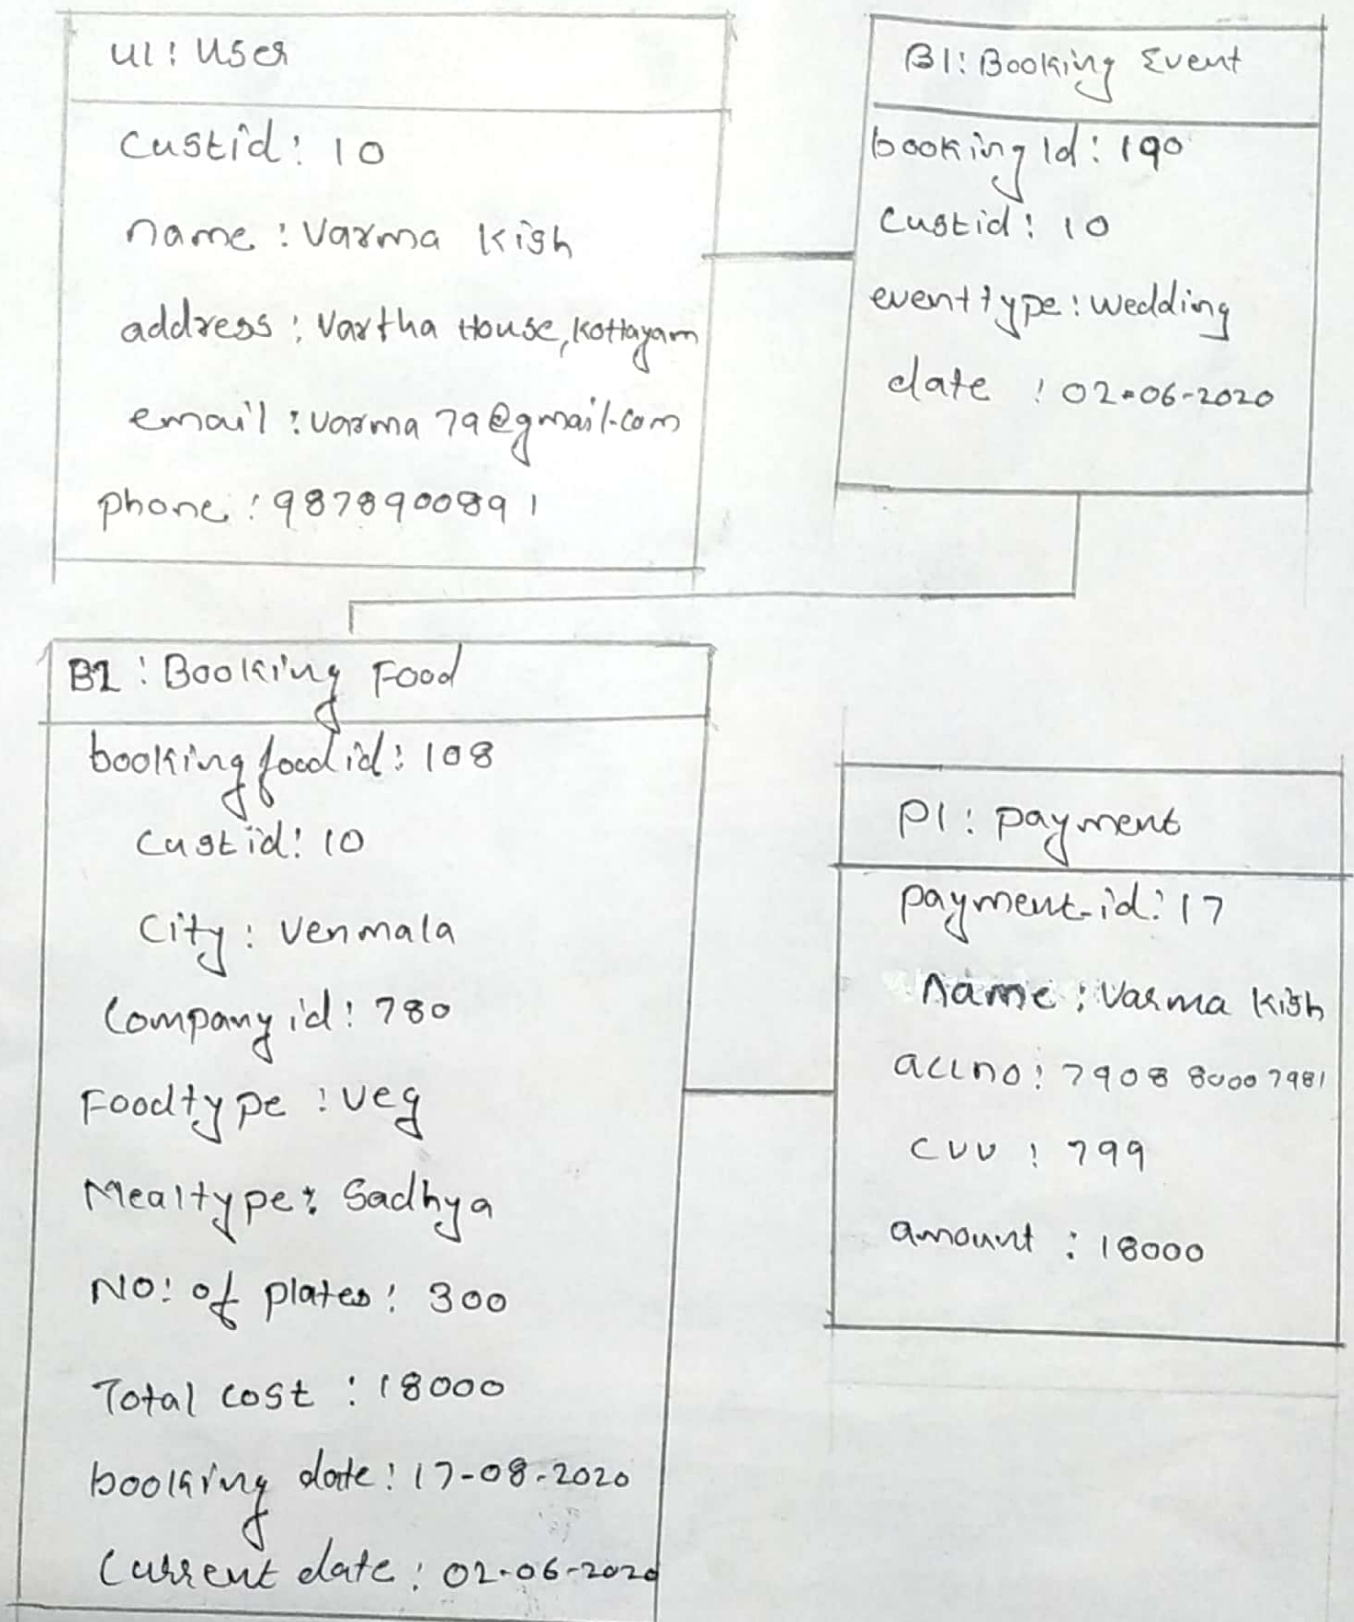 U1: User
Custid: 10
name: Varma Kish
address: Vartha House, Kottayam
email: varma79@gmail.com
phone: 9878900891
B1: Booking Event
booking Id: 190
Custid: 10
eventtype: Wedding
date: 02-06-2020
B2: Booking Food
bookingfoodid: 108
Custid: 10
City: Venmala
Company id: 780
Foodtype: veg
Mealtype: Sadhya
NO: of plates: 300
Total cost: 18000
booking date: 17-08-2020
Current date: 02-06-2020
P1: payment
payment-id: 17
Name: Varma Kish
accno: 7908 8000 7981
cvv: 799
amount: 18000